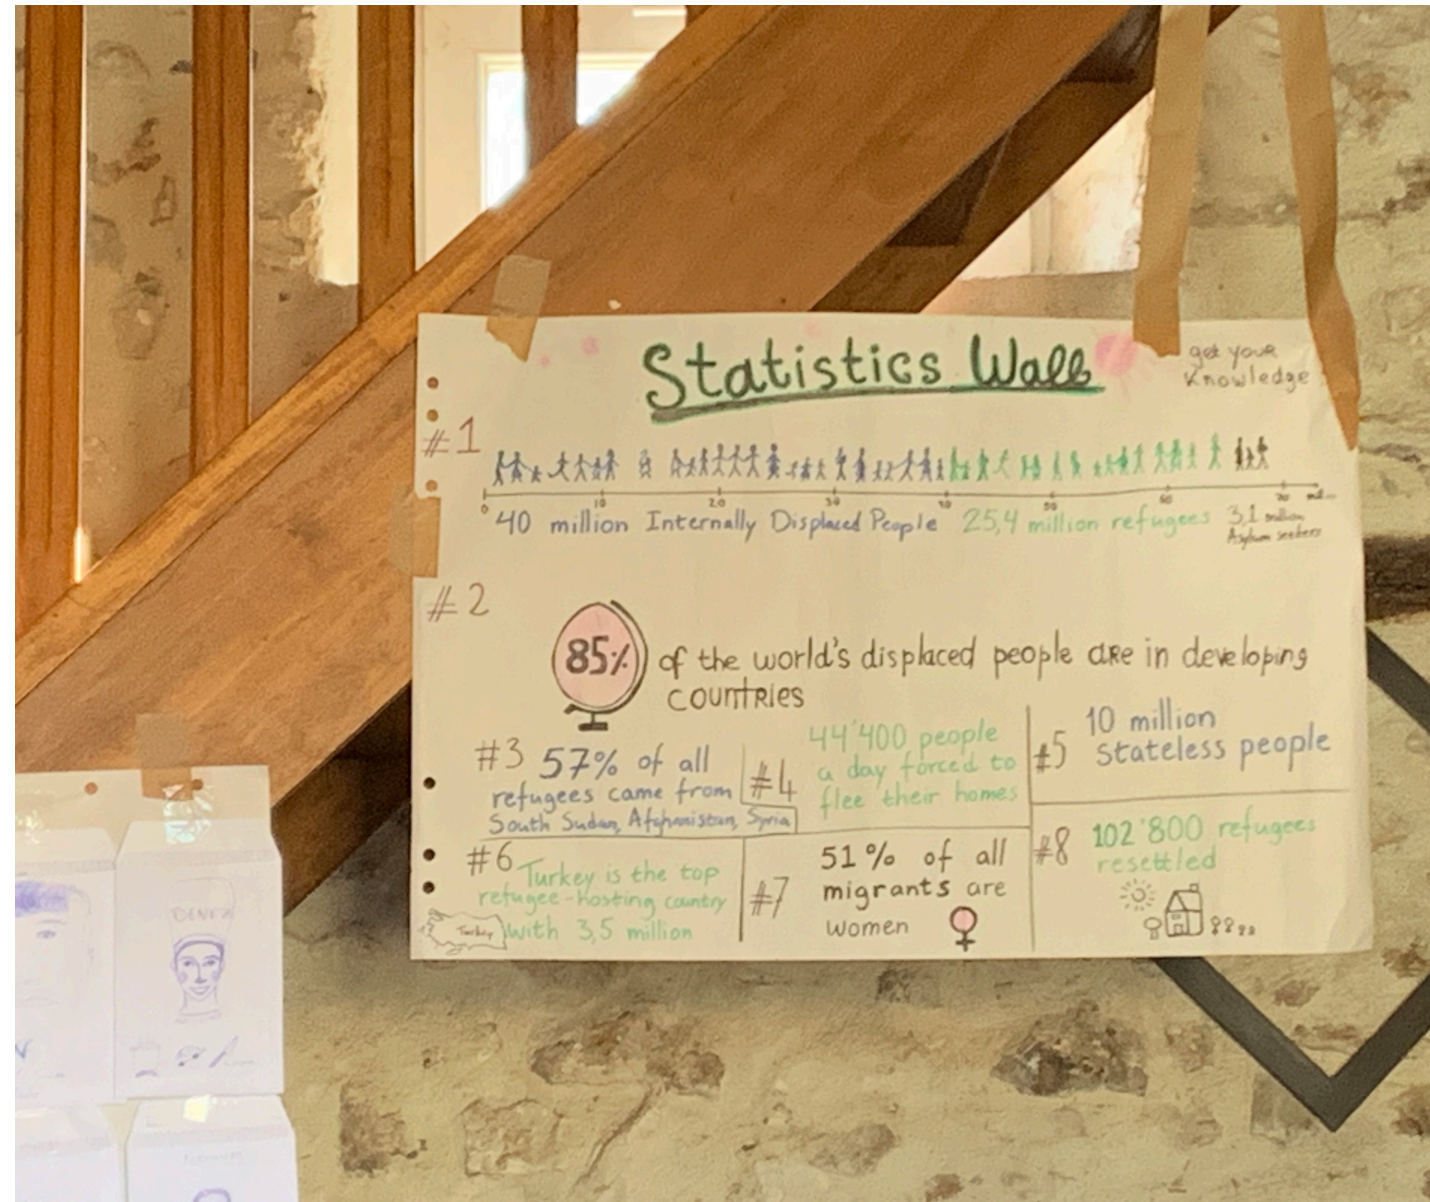 Statistics Wall
get your
knowledge
#1
0 10 20 30 40 50 60 70
40 million Internally Displaced People 25,4 million refugees 3,1 million
Asylum seekers
#2
85% of the world's displaced people are in developing
countries
#3 57% of all
refugees came from
South Sudan, Afghanistan, Syria
#4
44'400 people
a day forced to
flee their homes
#5
10 million
Stateless people
#6 Turkey is the top
refugee-hosting country
Turkey with 3,5 million
#7
51% of all
migrants are
women
#8 102'800 refugees
resettled